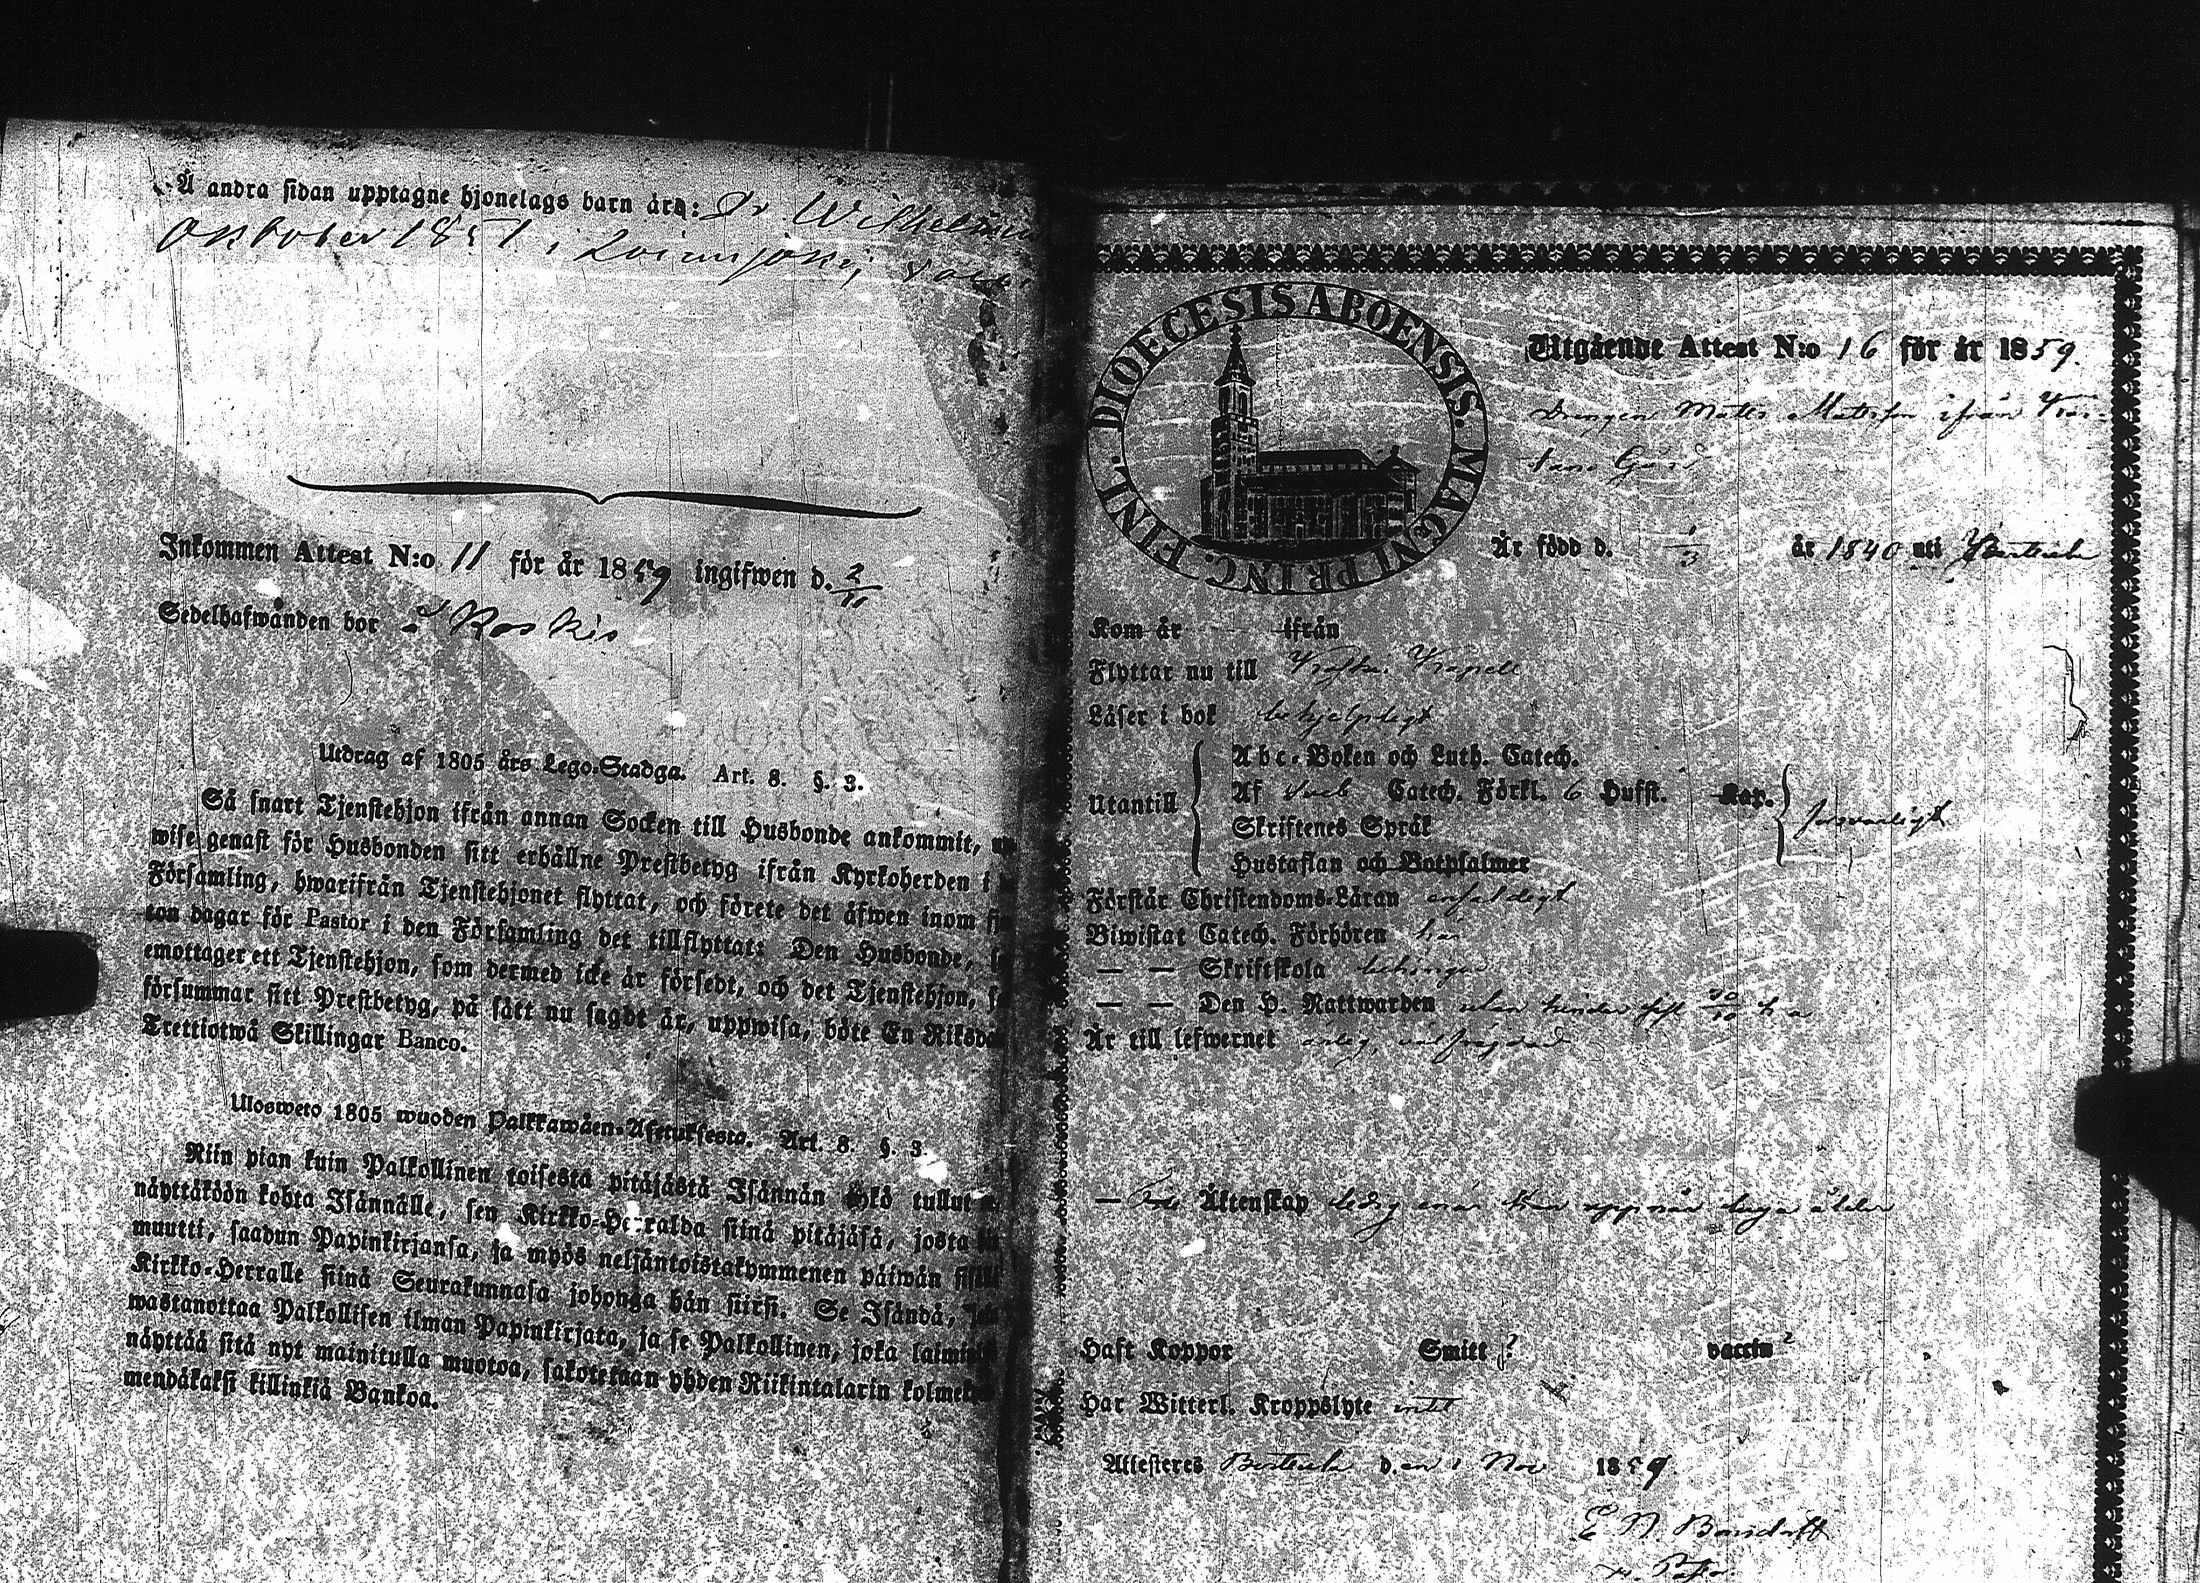 Å andra sidan upptagne hjonelags barn äro:
Oktober 1851 i Loimijoki
Inkommen Attest N:o 11 för år 1859 ingifwen d. 2/11
Sedelhafwanden bor i Koskis
Utdrag af 1805 års Lego-Stadga. Art. 8. §. 3.
Så snart Tjenstehjon ifrån annan Socken till Husbonde ankommit,
wise genast för Husbonden sitt erhållne Prestbetyg ifrån Kyrkoherden i
Församling, hwarifrån Tjenstehjonet flyttat, och förete det äfwen inom
ton dagar för Pastor i den Församling det tillflyttat: Den Husbonde,
emottager ett Tjenstehjon, som dermed icke är försedt, och det Tjenstehjon,
försummar sitt Prestbetyg, på sätt nu sagdt är, uppwisa, böte En
Trettiotwå Skillingar Banco.
Ulosweto 1805 wuoden Palkkawäen-Asetuksesta. Art. 8. §. 3.
Niin pian kuin Palkollinen toisesta pitäjästä Isännän tykö tullut
näyttäköön kohta Isännälle, sen Kirkko-Herralda siinä pitäjäsä, josta
muutti, saadun Papinkirjansa, ja myös neljäntoistakymmenen päiwän
Kirkko-Herralle siinä Seurakunnasa johonga hän siirsi. Se Isändä,
wastanottaa Palkollisen ilman Papinkirjata, ja se Palkollinen, joka
näyttää sitä nyt mainitulla muotoa, sakotetaan yhden Riikintalarin
mendäkaksi killinkiä Bankoa.
DIOECESIS ABOENSIS. MAGNI PRINC. FINL.
Utgående Attest N:o 16 för år 1859.
Drengen Matts Mattsson ifrån
Gård
Är född d. 1/3 år 1840 uti
Kom år ifrån
Flyttar nu till Kapell
Läser i bok behjelpligt
Abc-Boken och Luth. Catech.
Utantill Af Sveb Catech. Förkl. 6 Hufst. Kap. försvarligt
Skriftenes Språk
Hustaflan och Botpsalmer
Förstår Christendoms-Läran enfaldigt
Biwistat Catech. Förhören här
— — Skriftskola
— — Den H. Nattwarden utan hinder sist
Är till lefwernet ärlig, välfrägdad
— Äktenskap ledig
Haft Koppor Smitt ? vaccin ?
Har Witterl. Kroppslyte intet
Attesteras d.en 1 Nov 1859.